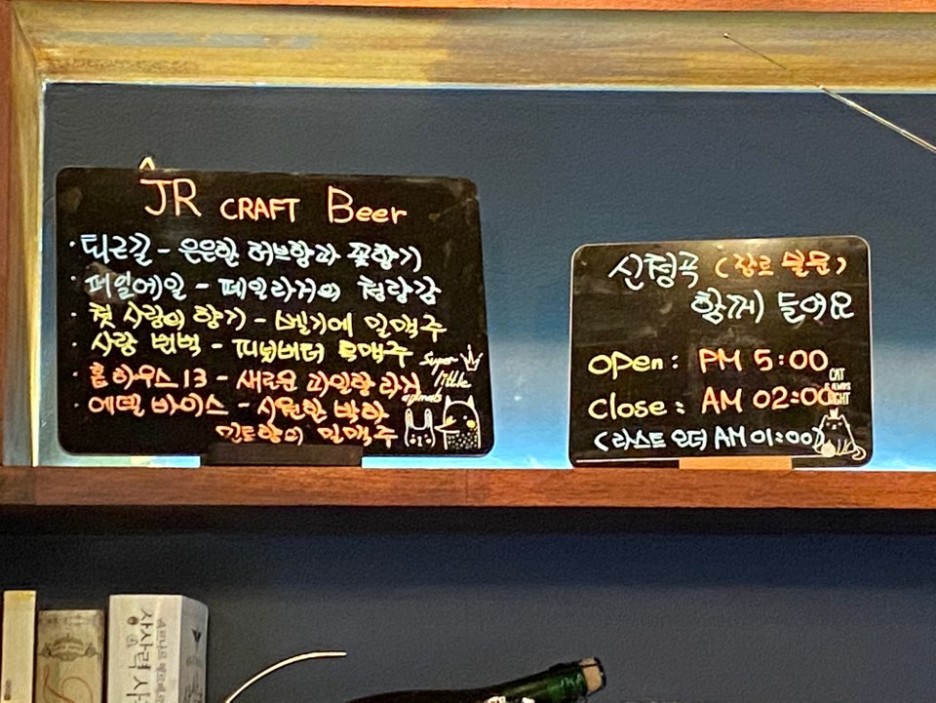 JR CRAFT Beer
· 퇴근길 - 은은한 허브향과 꽃향기
· 페일에일 - 페일라거의 청량감
· 첫 사랑의 향기 - 벨기에 밀맥주
· 사랑 번벅 - 피넛버터 흑맥주
· 홈 하우스 13 - 새로운 과일향 라거
· 에델 바이스 - 시원한 박하
민트향의 밀맥주
super
little
animals
신청곡 (장르 불문)
함께 들어요
open : PM 5:00
Close : AM 02:00
(라스트 오더 AM 01:00)
CAT
ALWAYS
RIGHT
상상력 사